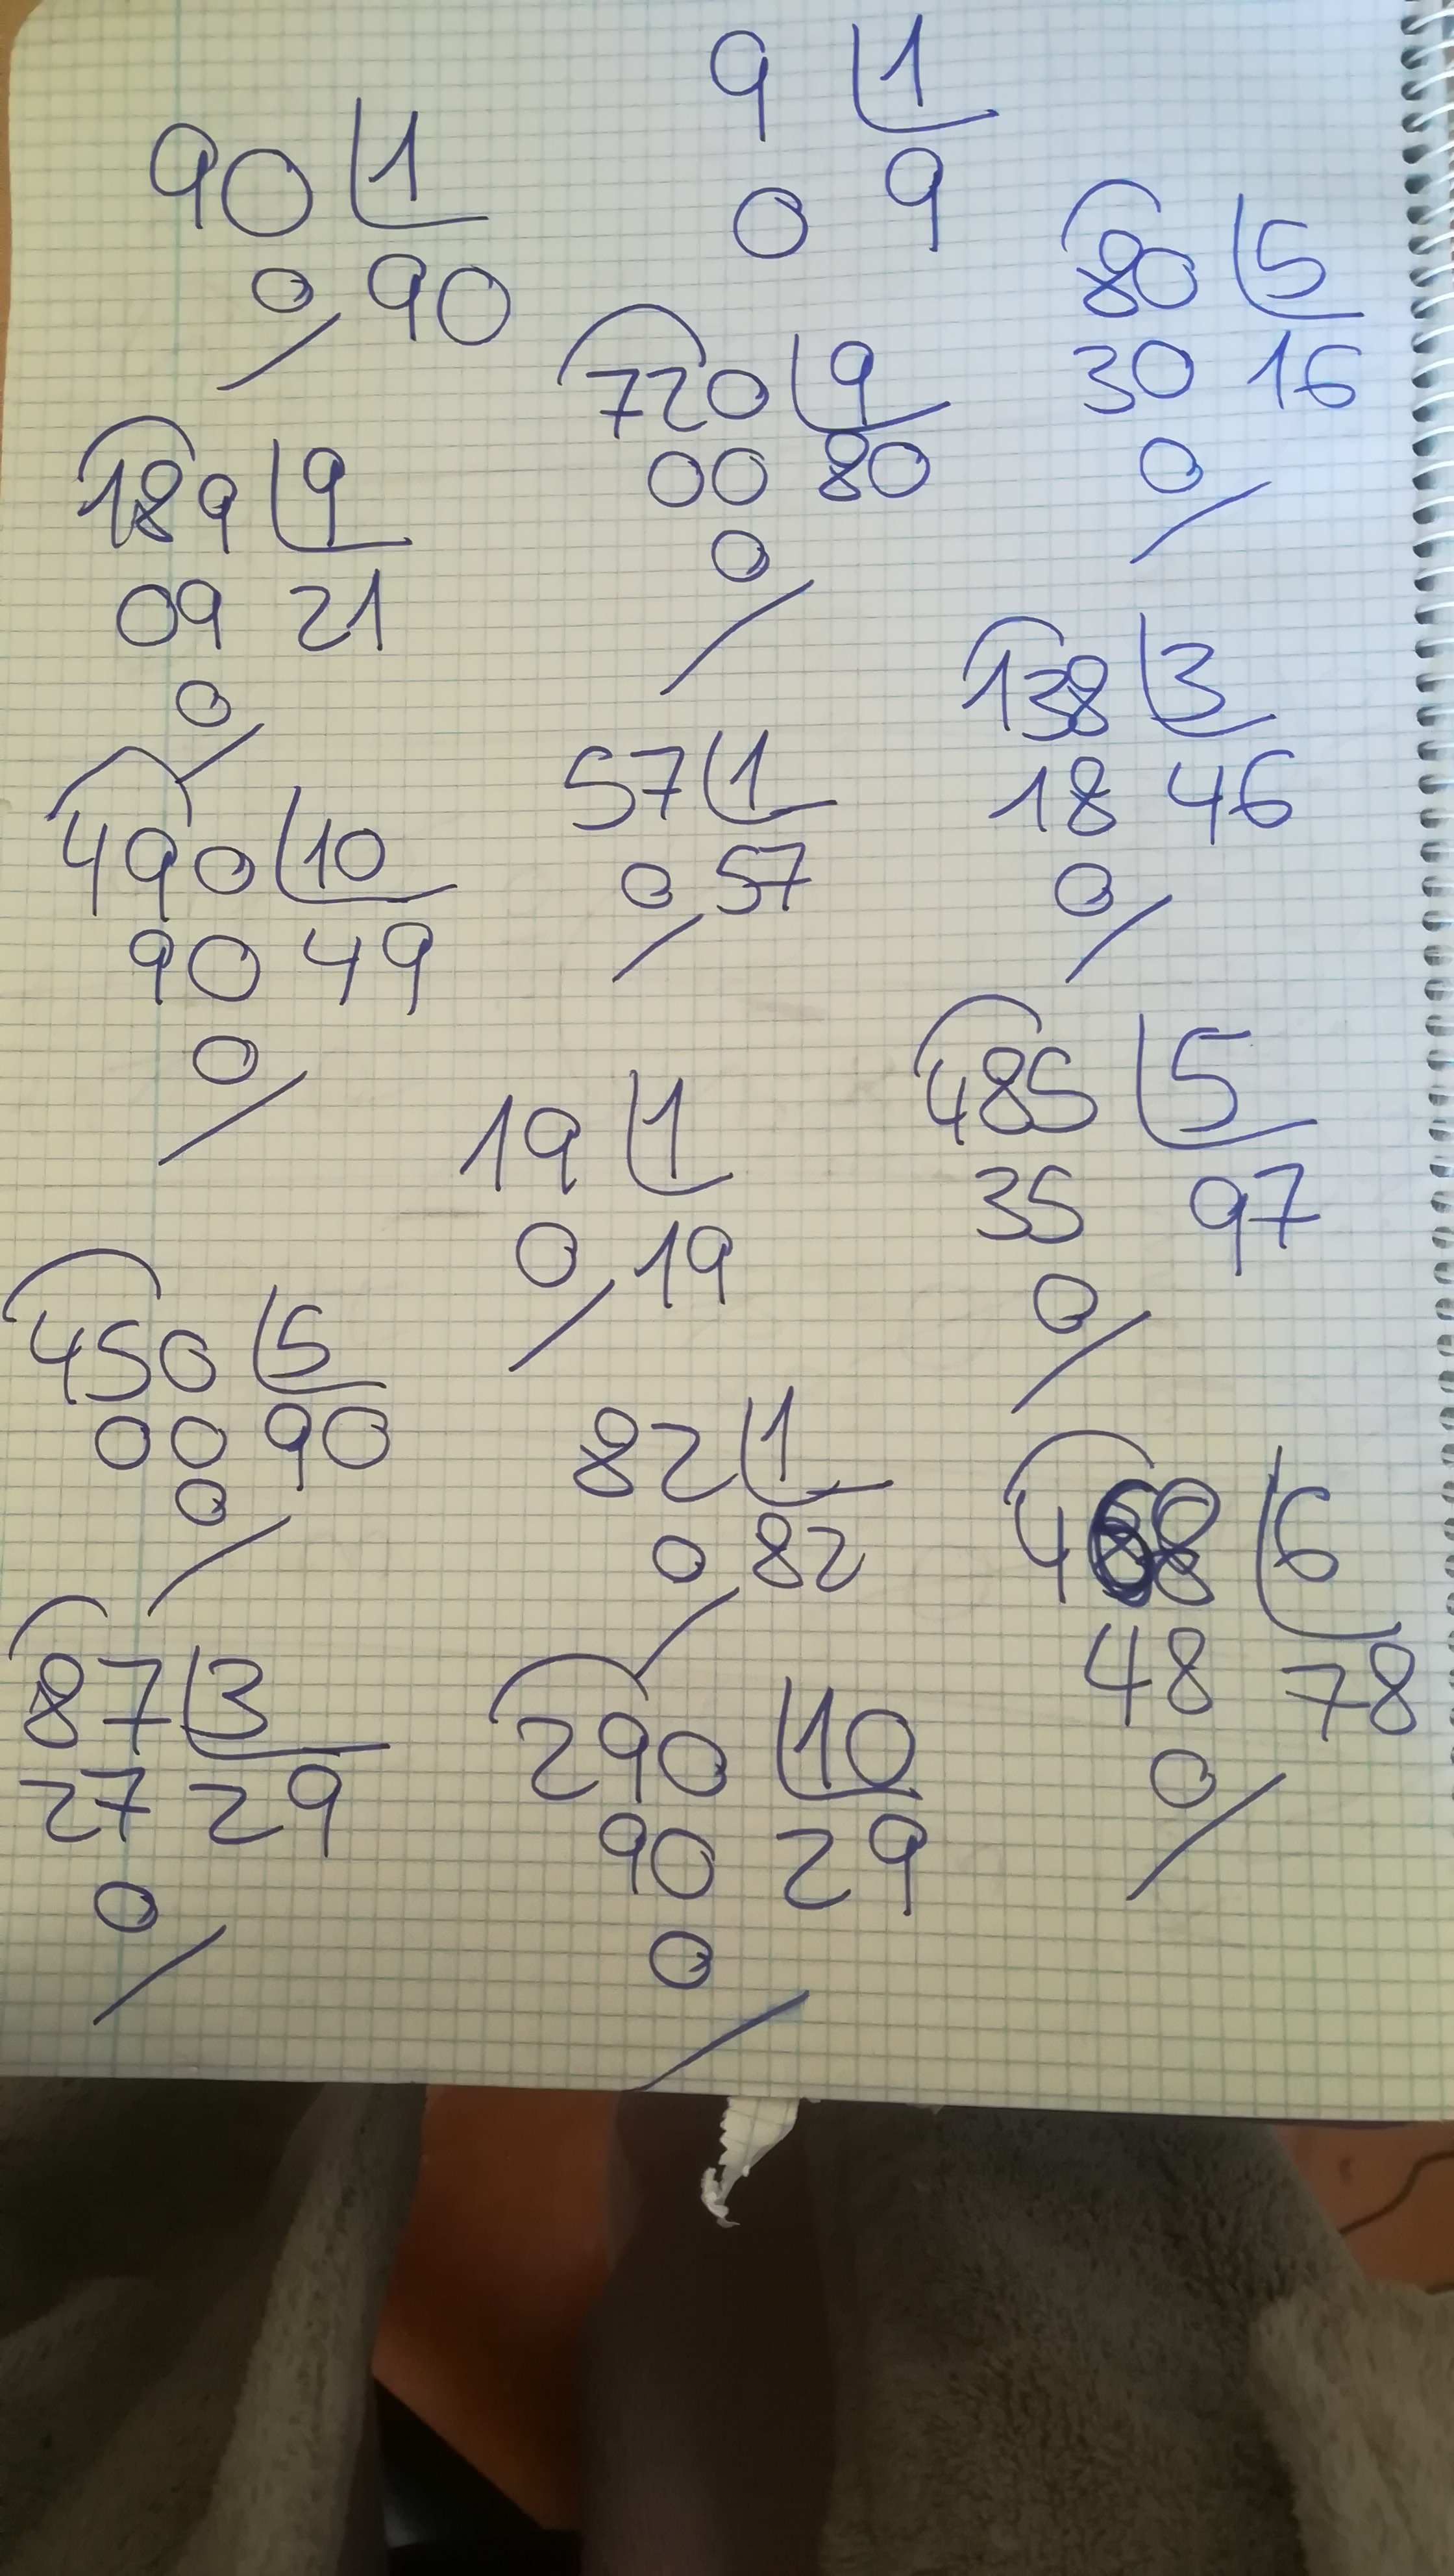 9 1
0 9
90 1
0 90
80 5
30 16
0
720 9
00 80
0
189 9
09 21
0
138 3
18 46
0
57 1
0 57
490 10
90 49
0
485 5
35 97
0
19 1
0 19
450 5
00 90
0
82 1
0 82
468 6
48 78
0
87 3
27 29
0
290 10
90 29
0